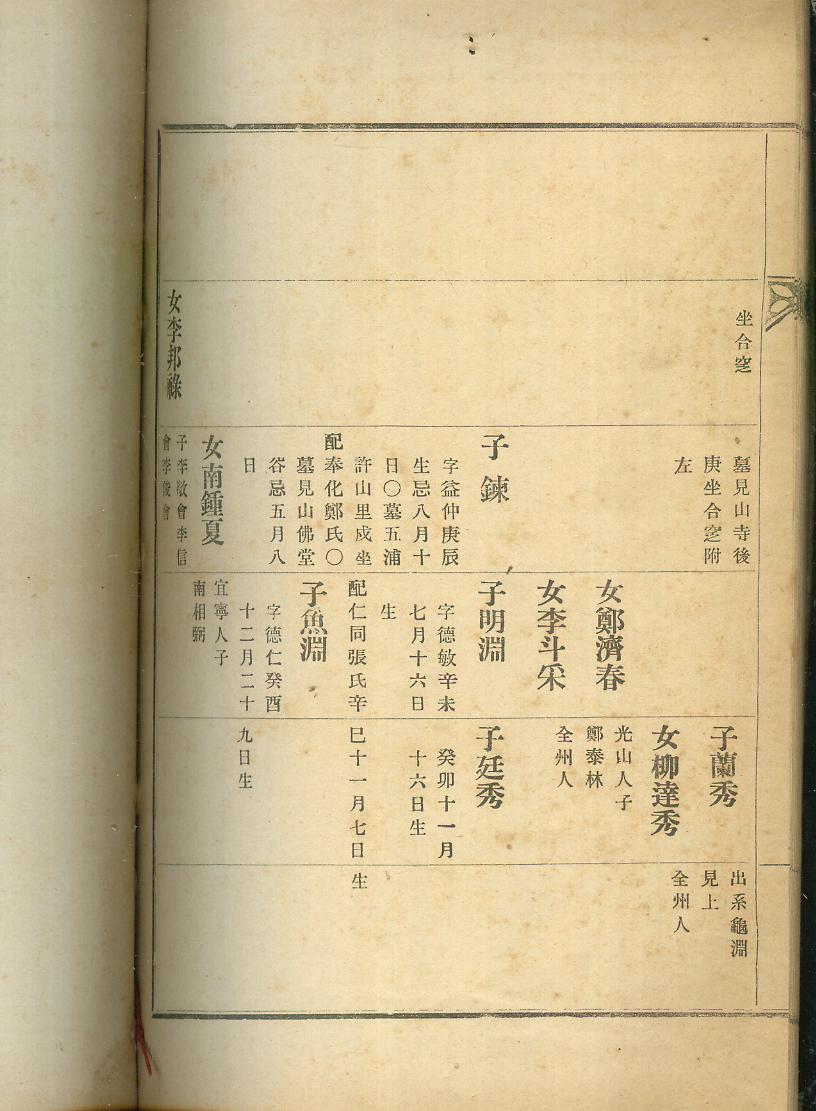 坐合窆
女李邦祿
墓見山寺後
庚坐合窆附
左
子鍊
字益仲庚辰
生忌八月十
日〇墓五浦
許山里戍坐
配奉化鄭氏〇
墓見山佛堂
谷忌五月八
日
女南鍾夏
子李敬會李信
會李俊會
女鄭濟春
女李斗采
子明淵
字德敏辛未
七月十六日
生
配仁同張氏辛
子魚淵
字德仁癸酉
十二月二十
宜寧人子
南相弼
子蘭秀
女柳達秀
光山人子
鄭泰林
全州人
子廷秀
癸卯十一月
十六日生
巳十一月七日
九日生
出系龜淵
見上
全州人
生